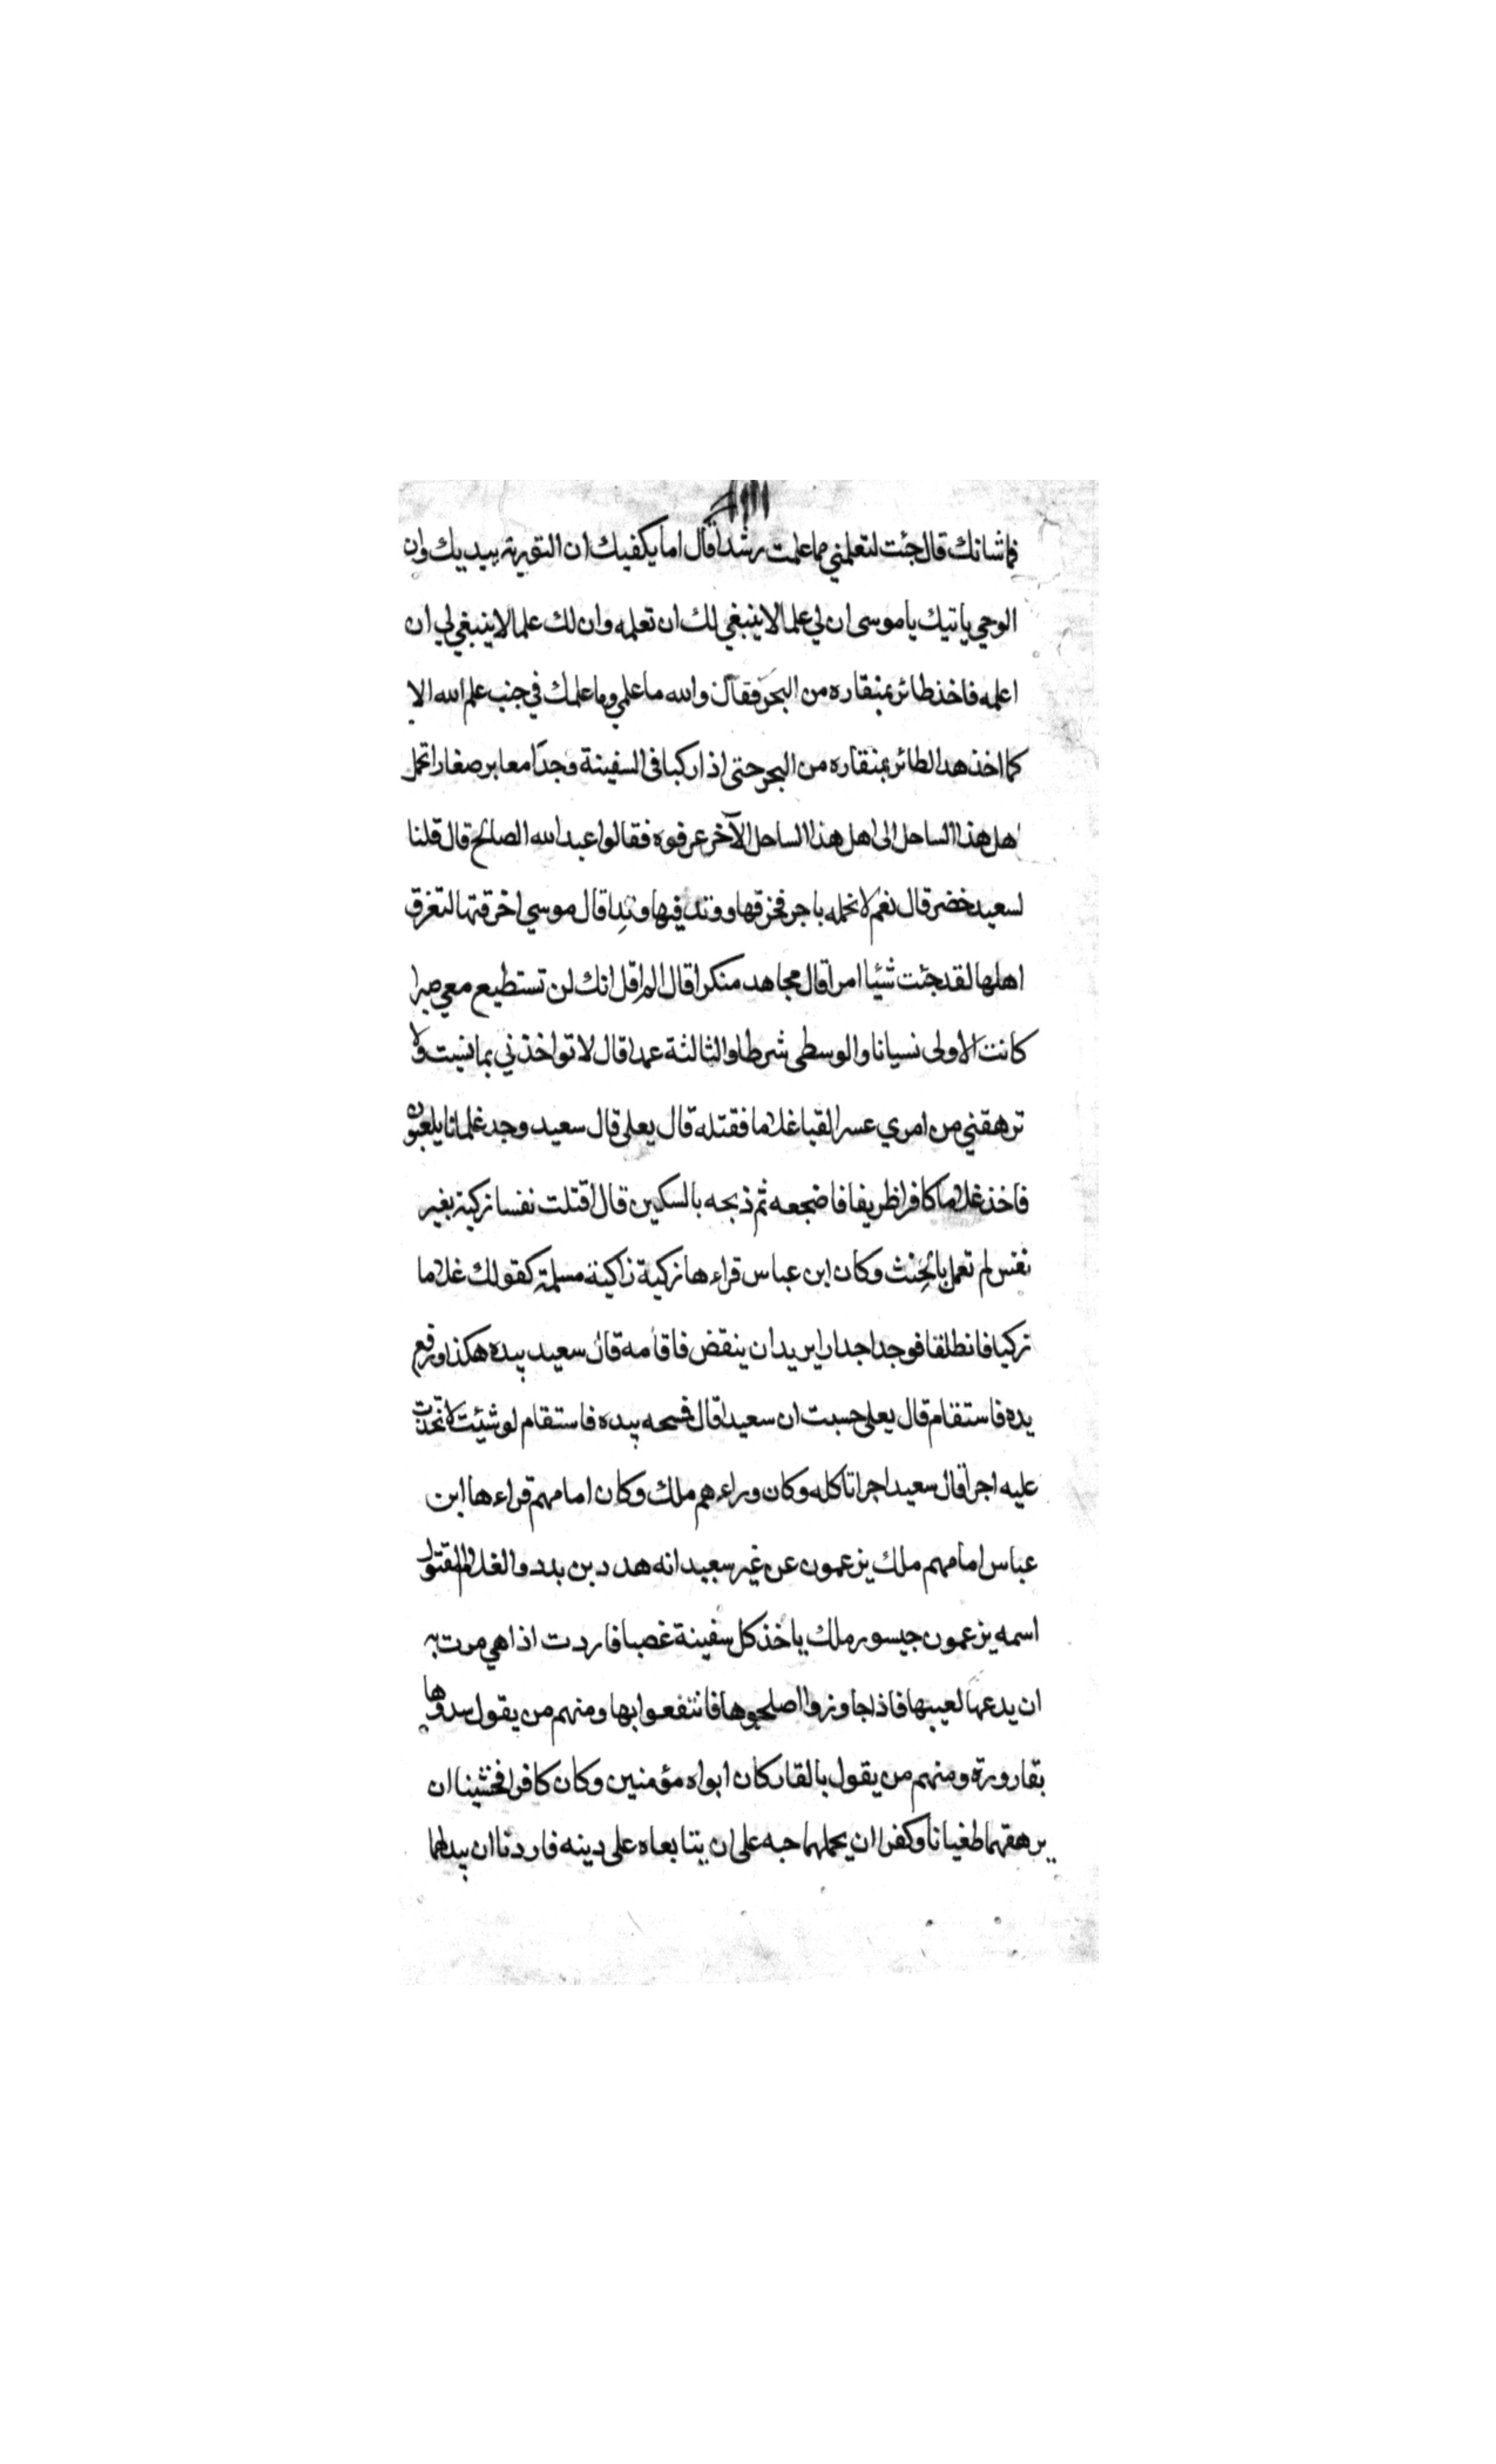 فما شانك قال جئت لتعلمني مما علمت رشدا قال اما يكفيك ان التورية بيديك وان
الوحي ياتيك يا موسى ان لي علما لا ينبغي لك ان تعلمه وان لك علما لا ينبغي لي ان
اعلمه فاخذ طائر بمنقاره من البحر فقال والله ما علمي وما علمك في جنب علم الله الا
كما اخذ هذا الطائر بمنقاره من البحر حتى اذا ركبا في السفينة وجدا معابر صغارا تحمل
اهل هذا الساحل الى اهل هذا الساحل الآخر عرفوه فقالوا عبد الله الصالح قال قلنا
لسعيد خضر قال نعم لا نحمله باجر فخرقها ووتد فيها وتدا قال موسي اخرقتها لتغرق
اهلها لقد جئت شيئا امرا قال مجاهد منكرا قال الم اقل انك لن تستطيع معي صبرا
كانت الاولى نسيانا والوسطى شرطا والثالثة عمدا قال لا تواخذني بما نسيت ولا
ترهقني من امري عسرا لقيا غلاما فقتله قال يعلى قال سعيد وجد غلمانا يلعبون
فاخذ غلاما كافرا ظريفا فاضجعه ثم ذبحه بالسكين قال اقتلت نفسا زكية بغير
نفس لم تعمل بالحنث وكان ابن عباس قراءها زكية زاكية مسلمة كقولك غلاما
زكيا فانطلقا فوجدا جدارا يريد ان ينقض فاقامه قال سعيد بيده هكذا ورفع
يده فاستقام قال يعلى حسبت ان سعيدا قال فمسحه بيده فاستقام لو شئت لاتخذت
عليه اجرا قال سعيد اجرا تاكله وكان وراءهم ملك وكان امامهم قراءها ابن
عباس امامهم ملك يزعمون عن غير سعيد انه هدد بن بدد والغلام المقتول
اسمه يزعمون جيسور ملك ياخذ كل سفينة غصبا فاردت اذا هي مرت به
ان يدعها لعيبها فاذا جاوزوا اصلحوها فانتفعوا بها ومنهم من يقول سدوها
بقارورة ومنهم من يقول بالقار كان ابواه مؤمنين وكان كافرا فخشينا ان
يرهقهما طغيانا وكفرا ان يحملهما حبه على ان يتابعاه على دينه فاردنا ان يبدلهما